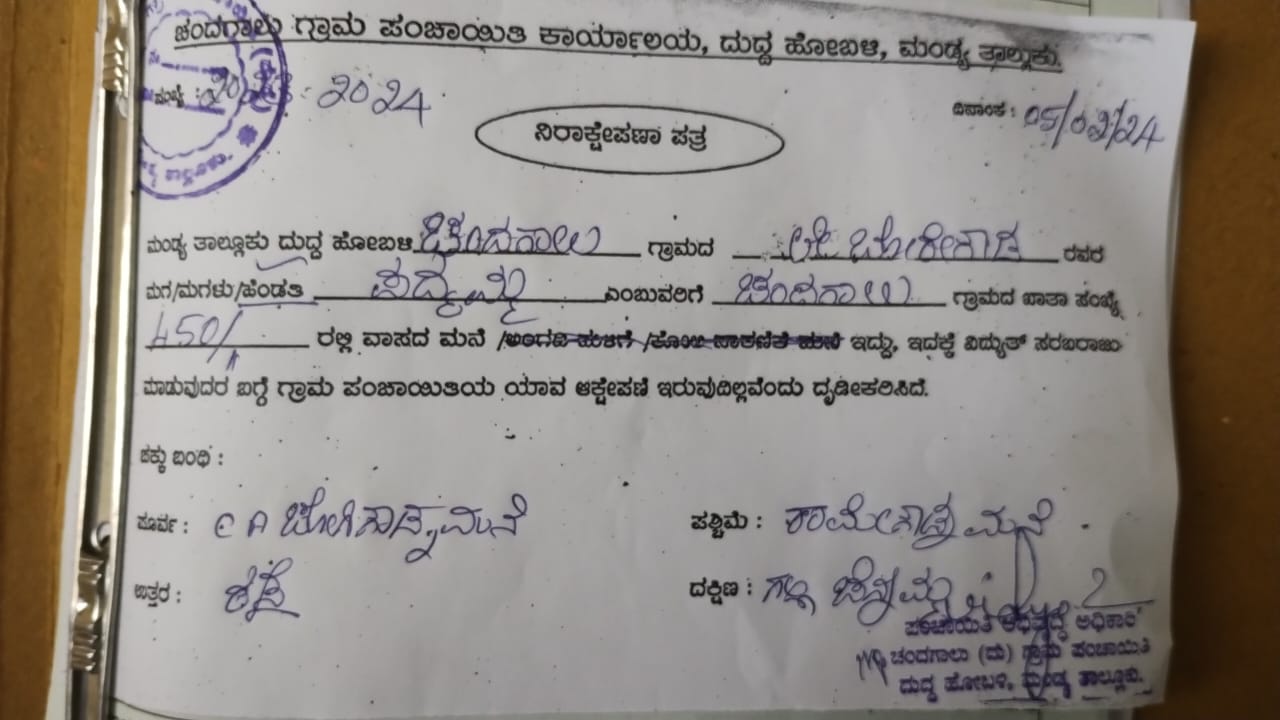 ಚಂದಗಾಲು ಗ್ರಾಮ ಪಂಚಾಯಿತಿ ಕಾರ್ಯಾಲಯ, ದುದ್ದ ಹೋಬಳಿ, ಮಂಡ್ಯ ತಾಲ್ಲೂಕು.
ಸಂಖ್ಯೆ : 2024 ದಿನಾಂಕ : 05/02/24
ನಿರಾಕ್ಷೇಪಣಾ ಪತ್ರ
ಮಂಡ್ಯ ತಾಲ್ಲೂಕು ದುದ್ದ ಹೋಬಳಿ ಚಂದಗಾಲು ಗ್ರಾಮದ ಲೇ ಬೋರೇಗೌಡ ರವರ
ಮಗ/ಮಗಳು/ಹೆಂಡತಿ ಪದ್ಮಮ್ಮ ಎಂಬುವರಿಗೆ ಚಂದಗಾಲು ಗ್ರಾಮದ ಖಾತಾ ಸಂಖ್ಯೆ
450/1 ರಲ್ಲಿ ವಾಸದ ಮನೆ /ಅಂಗಡಿ ಮಳಿಗೆ /ಕೋಳಿ ಸಾಕಣಿಕೆ ಮನೆ ಇದ್ದು, ಇದಕ್ಕೆ ವಿದ್ಯುತ್ ಸರಬರಾಜು
ಮಾಡುವುದರ ಬಗ್ಗೆ ಗ್ರಾಮ ಪಂಚಾಯಿತಿಯ ಯಾವ ಆಕ್ಷೇಪಣೆ ಇರುವುದಿಲ್ಲವೆಂದು ದೃಢೀಕರಿಸಿದೆ.
ಚಕ್ಕು ಬಂಧಿ :
ಪೂರ್ವ : ಮನೆ ಪಶ್ಚಿಮ : ರಾಮೇಗೌಡ್ರ ಮನೆ
ಉತ್ತರ : ರಸ್ತೆ ದಕ್ಷಿಣ : ಗಲ್ಲಿ
ಪಂಚಾಯಿತಿ ಅಭಿವೃದ್ಧಿ ಅಧಿಕಾರಿ
ಚಂದಗಾಲು (ದು) ಗ್ರಾಮ ಪಂಚಾಯಿತಿ
ದುದ್ದ ಹೋಬಳಿ, ಮಂಡ್ಯ ತಾಲ್ಲೂಕು.